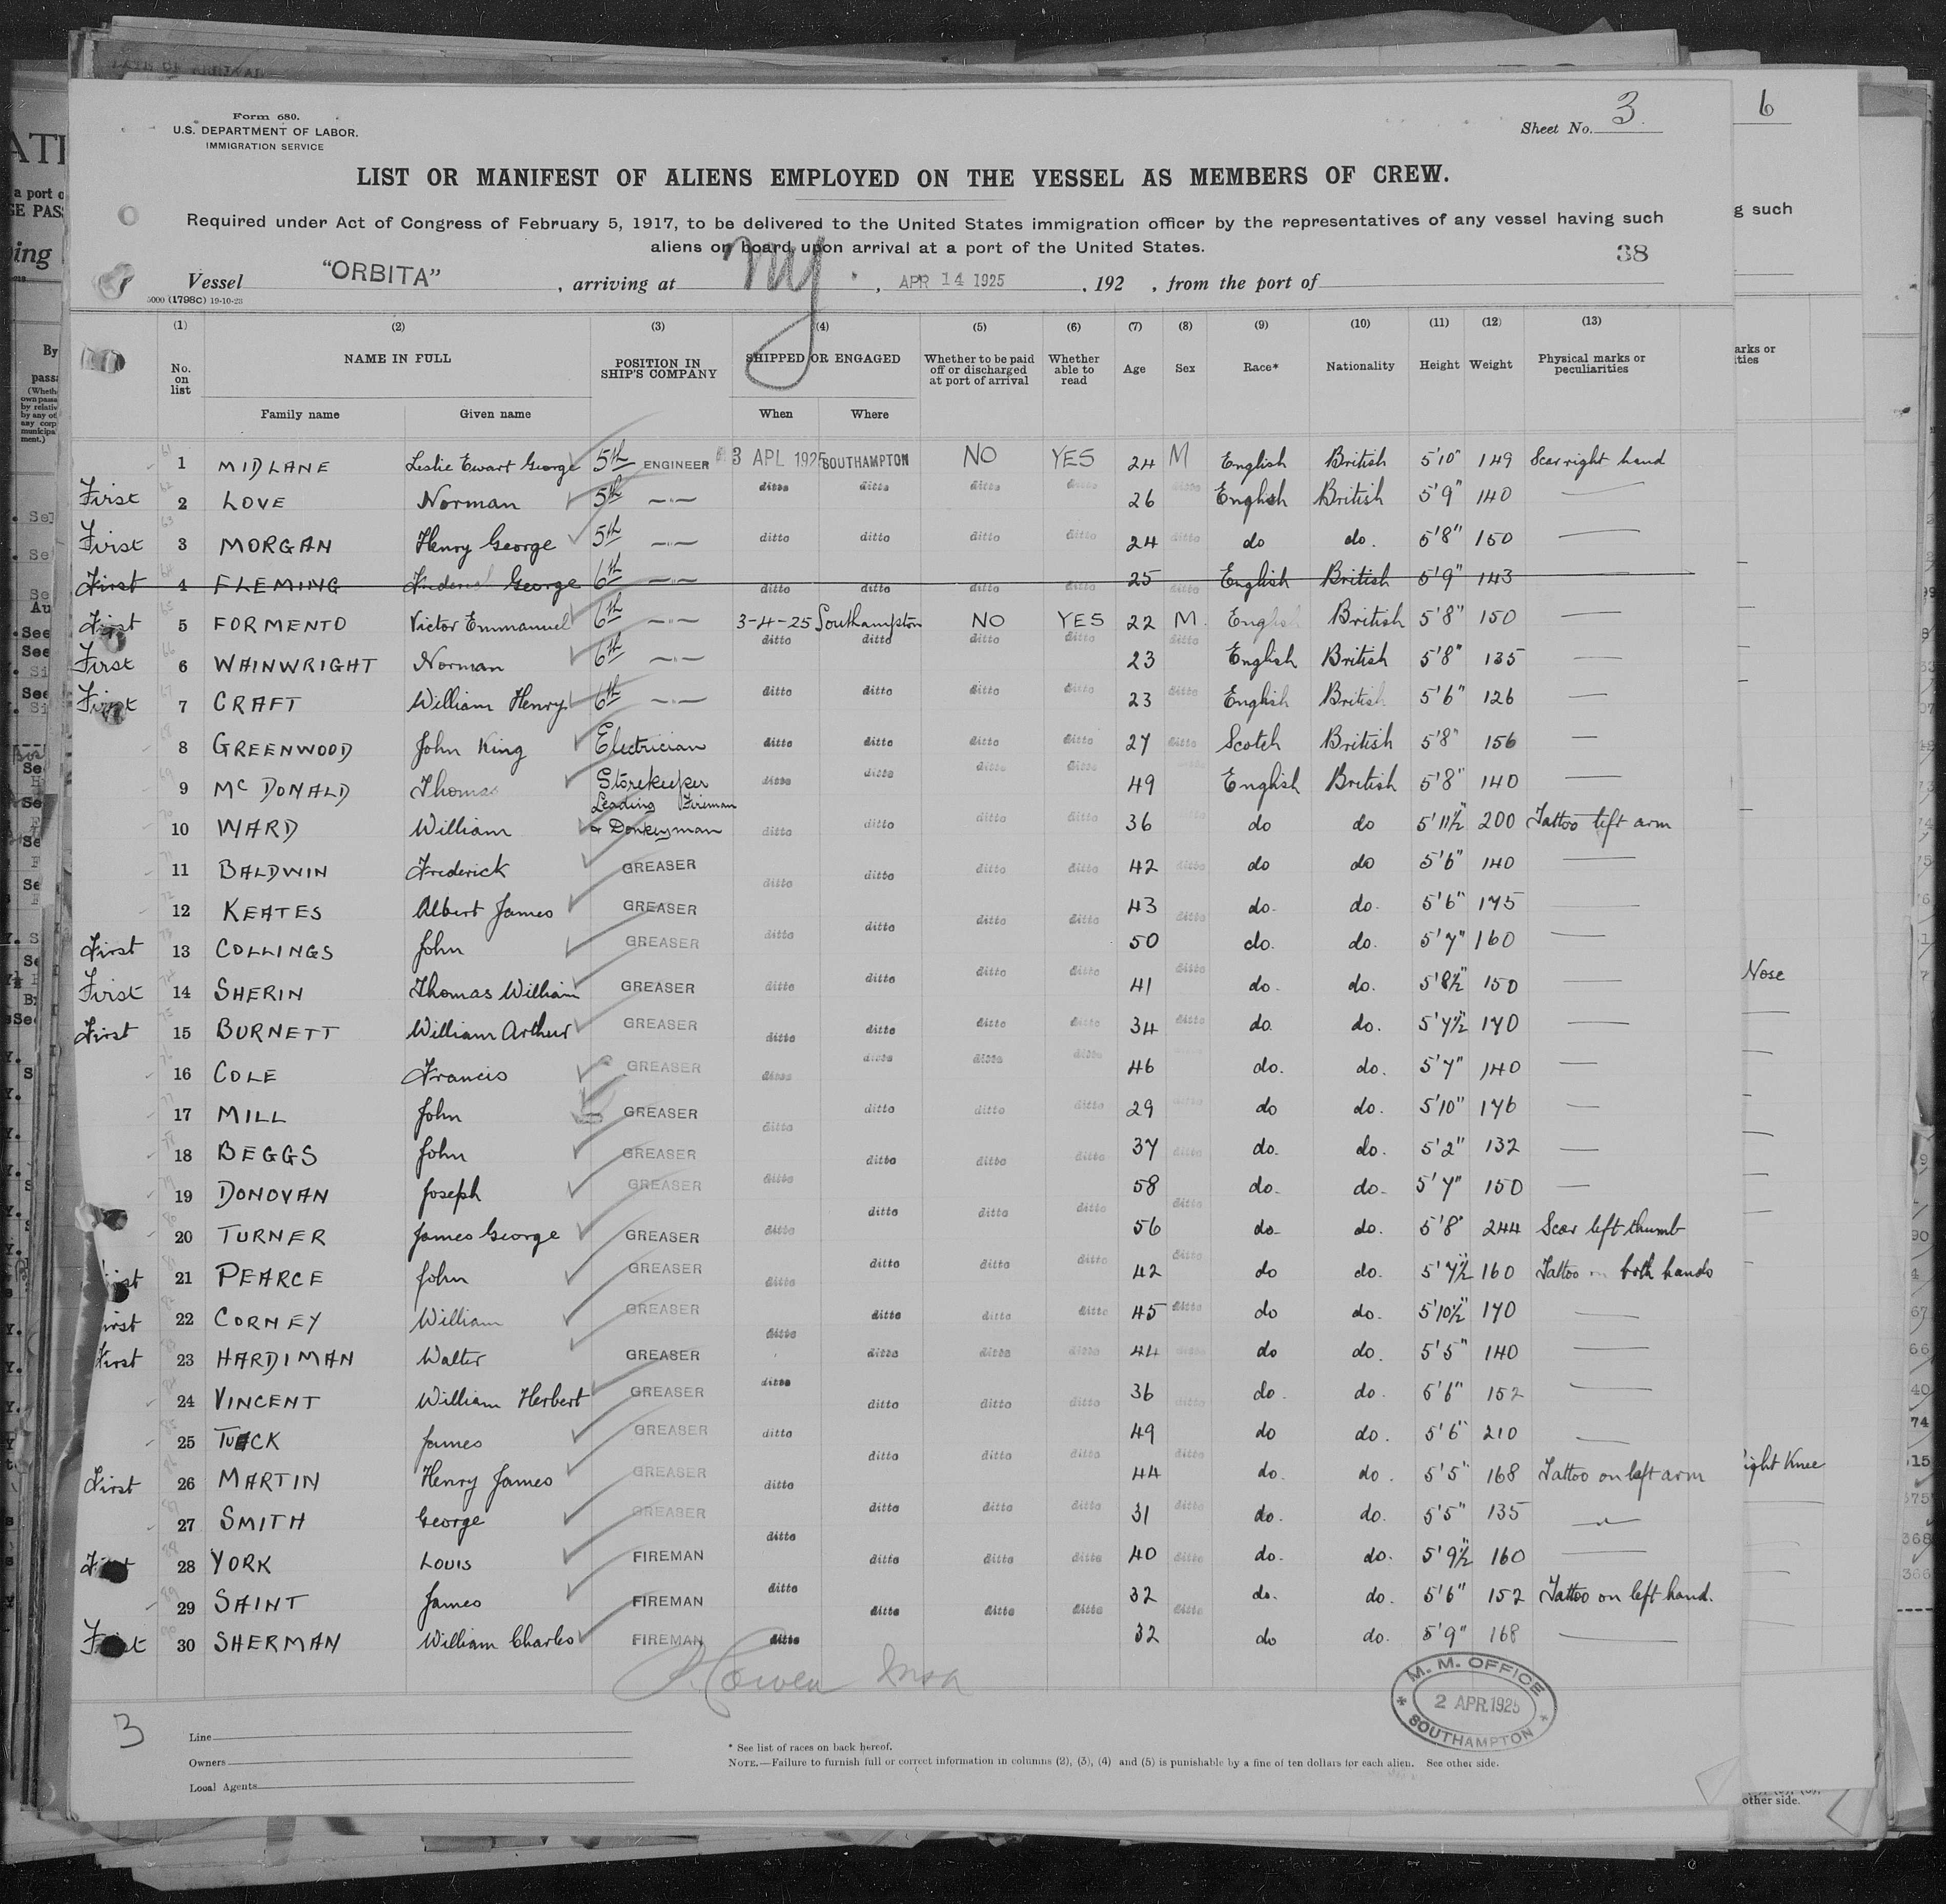 Form 680.
U.S. DEPARTMENT OF LABOR.
IMMIGRATION SERVICE
Sheet No. 3.
6
LIST OR MANIFEST OF ALIENS EMPLOYED ON THE VESSEL AS MEMBERS OF CREW.
Required under Act of Congress of February 5, 1917, to be delivered to the United States immigration officer by the representatives of any vessel having such
aliens on board upon arrival at a port of the United States.
38
Vessel "ORBITA", arriving at NY, APR 14 1925, 192 , from the port of
5000 (1798C) 19-10-23
(1) (2) (3) (4) (5) (6) (7) (8) (9) (10) (11) (12) (13)
No. on list NAME IN FULL POSITION IN SHIP'S COMPANY SHIPPED OR ENGAGED Whether to be paid off or discharged at port of arrival Whether able to read Age Sex Race* Nationality Height Weight Physical marks or peculiarities
Family name Given name When Where
1 MIDLANE Leslie Ewart George 5th ENGINEER 3 APL 1925 SOUTHAMPTON NO YES 24 M English British 5'10" 149 Scar right hand
First 2 LOVE Norman 5th —"— ditto ditto ditto ditto 26 ditto English British 5'9" 140 —
First 3 MORGAN Henry George 5th —"— ditto ditto ditto ditto 24 ditto do do. 5'8" 150 —
First 4 FLEMING Frederick George 6th —"— ditto ditto ditto ditto 25 ditto English British 5'9" 143 —
First 5 FORMENTO Victor Emmanuel 6th —"— 3-4-25 Southampton NO YES 22 M. English British 5'8" 150 —
First 6 WAINWRIGHT Norman 6th —"— ditto ditto ditto ditto 23 ditto English British 5'8" 135 —
First 7 CRAFT William Henry 6th —"— ditto ditto ditto ditto 23 ditto English British 5'6" 126 —
8 GREENWOOD John King Electrician ditto ditto ditto ditto 27 ditto Scotch British 5'8" 156 —
9 McDONALD Thomas Storekeeper ditto ditto ditto ditto 49 English British 5'8" 140 —
10 WARD William Leading Fireman & Donkeyman ditto ditto ditto ditto 36 do do 5'11½ 200 Tattoo left arm
11 BALDWIN Frederick GREASER ditto ditto ditto ditto 42 ditto do do 5'6" 140 —
12 KEATES Albert James GREASER ditto ditto ditto ditto 43 ditto do. do. 5'6" 175 —
First 13 COLLINGS John GREASER ditto ditto ditto ditto 50 do. do. 5'7" 160 —
First 14 SHERIN Thomas William GREASER ditto ditto ditto ditto 41 ditto do. do. 5'8½" 150 —
First 15 BURNETT William Arthur GREASER ditto ditto ditto ditto 34 ditto do. do. 5'7½" 170 —
16 COLE Francis GREASER ditto ditto ditto ditto 46 do. do. 5'7" 140 —
17 MILL John GREASER ditto ditto ditto ditto 29 do do. 5'10" 176 —
18 BEGGS John GREASER ditto ditto ditto ditto 37 ditto do. do. 5'2" 132 —
19 DONOVAN Joseph GREASER ditto ditto ditto ditto 58 ditto do. do. 5'7" 150 —
20 TURNER James George GREASER ditto ditto ditto ditto 56 ditto do. do. 5'8" 244 Scar left thumb
First 21 PEARCE John GREASER ditto ditto ditto ditto 42 ditto do do. 5'7½" 160 Tattoo on both hands
First 22 CORNEY William GREASER ditto ditto ditto ditto 45 ditto do do. 5'10½" 170 —
First 23 HARDIMAN Walter GREASER ditto ditto ditto 44 ditto do do. 5'5" 140 —
24 VINCENT William Herbert GREASER ditto ditto ditto ditto 36 ditto do. do. 5'6" 152 —
25 TUCK James GREASER ditto ditto ditto ditto 49 ditto do do. 5'6" 210 —
First 26 MARTIN Henry James GREASER ditto ditto ditto ditto 44 ditto do. do. 5'5" 168 Tattoo on left arm
27 SMITH George GREASER ditto ditto ditto ditto 31 ditto do. do. 5'5" 135 —
First 28 YORK Louis FIREMAN ditto ditto ditto ditto 40 ditto do. do. 5'9½" 160 —
29 SAINT James FIREMAN ditto ditto ditto ditto 32 ditto do. do. 5'6" 152 Tattoo on left hand.
First 30 SHERMAN William Charles FIREMAN ditto 32 do do. 5'9" 168 —
M. M. OFFICE
2 APR. 1925
SOUTHAMPTON
3
Line
Owners
Local Agents
* See list of races on back hereof.
NOTE.—Failure to furnish full or correct information in columns (2), (3), (4) and (5) is punishable by a fine of ten dollars for each alien. See other side.
g such
Nose
ight Knee
other side.